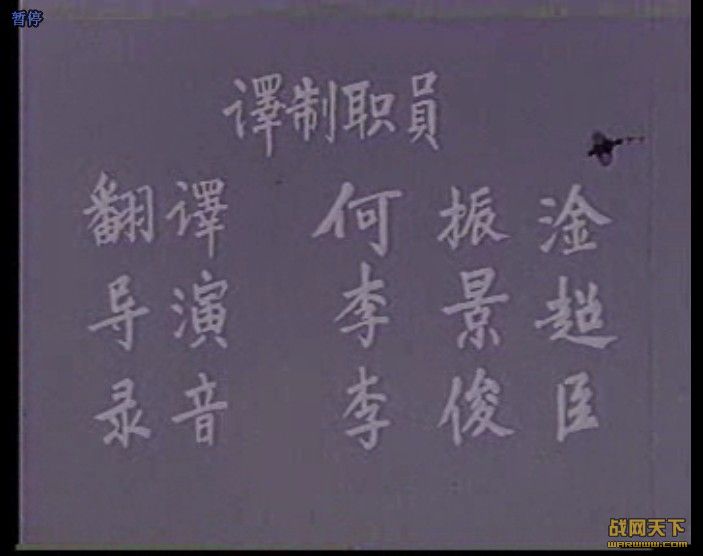 暂停
譯制职員
翻譯 何振淦
导演 李景超
录音 李俊臣
战网天下
WARWWW.COM